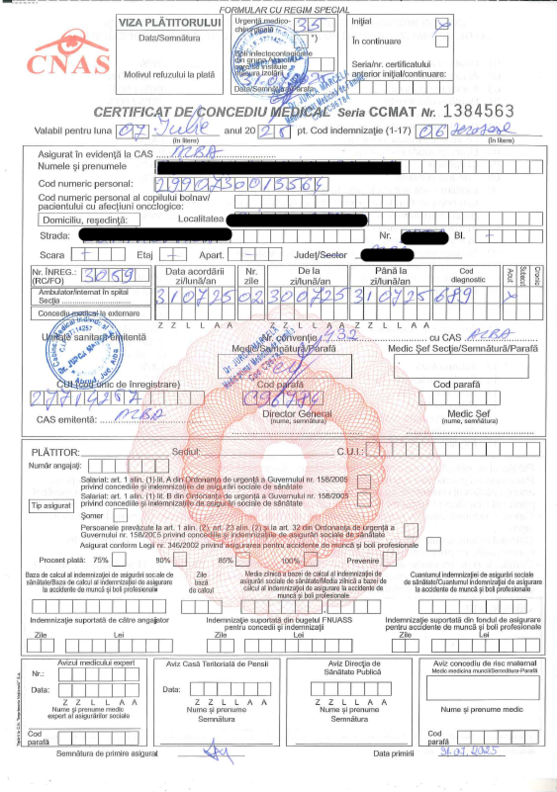 FORMULAR CU REGIM SPECIAL
CNAS
VIZA PLĂTITORULUI
Data/Semnătura
Motivul refuzului la plată
Urgență medico-
chirurgicală
35
Inițial
În continuare
Seria/nr. certificatului
anterior inițial/continuare:
Data/Semnătura/Parafa
CERTIFICAT DE CONCEDIU MEDICAL Seria CCMAT Nr. 1384563
Valabil pentru luna 07 Iulie anul 2025 pt. Cod indemnizație (1-17) 06
(în litere) (în litere)
Asigurat în evidență la CAS
Numele și prenumele
Cod numeric personal: 2990730013564
Cod numeric personal al copilului bolnav/
pacientului cu afecțiuni oncologice:
Domiciliu, reședință: Localitatea
Strada: Nr. Bl.
Scara Etaj Apart. Județ/Sector
Nr. ÎNREG.:
(RC/FO)
3059
Data acordării
zi/lună/an
Nr.
zile
De la
zi/lună/an
Până la
zi/lună/an
Cod
diagnostic
Acut
Subacut
Cronic
Ambulator/internat în spital
Secția
310725 02 300725 310725 689 x
Concediu medical la externare
Z Z L L A A Z Z L L A A
Unitate sanitară emitentă Nr. convenție 432 cu CAS
Medic/Semnătură/Parafă
Medic Șef Secție/Semnătură/Parafă
CUI (cod unic de înregistrare)
Cod parafă
Cod parafă
CAS emitentă:
Director General
(nume, semnătura)
Medic Șef
(nume, semnătura)
PLĂTITOR: Sediul: C.U.I.:
Număr angajați:
Tip asigurat
Salariat: art. 1 alin. (1) lit. A din Ordonanța de urgență a Guvernului nr. 158/2005
privind concediile și indemnizațiile de asigurări sociale de sănătate
Salariat: art. 1 alin. (1) lit. B din Ordonanța de urgență a Guvernului nr. 158/2005
privind concediile și indemnizațiile de asigurări sociale de sănătate
Șomer
Persoanele prevăzute la art. 1 alin. (2), art. 23 alin. (2) și la art. 32 din Ordonanța de urgență a
Guvernului nr. 158/2005 privind concediile și indemnizațiile de asigurări sociale de sănătate
Asigurat conform Legii nr. 346/2002 privind asigurarea pentru accidente de muncă și boli profesionale
Procent plată: 75% 80% 85% 100% Prevenire
Baza de calcul al indemnizației de asigurări sociale de
sănătate/Baza de calcul al indemnizației de asigurare
la accidente de muncă și boli profesionale
Zile
bază
de calcul
Media zilnică a bazei de calcul al indemnizației de
asigurări sociale de sănătate/Media zilnică a bazei de
calcul al indemnizației de asigurare la accidente
de muncă și boli profesionale
Cuantumul indemnizației de asigurări sociale
de sănătate/Cuantumul indemnizației de asigurare
la accidente de muncă și boli profesionale
Indemnizație suportată de către angajator
Indemnizație suportată din bugetul FNUASS
pentru concedii și indemnizații
Indemnizație suportată din fondul de asigurare
pentru accidente de muncă și boli profesionale
Zile Lei Zile Lei Zile Lei
Avizul medicului expert
Nr.:
Data:
Z Z L L A A
Nume și prenume medic
expert al asigurărilor sociale
Cod
parafă
Aviz Casă Teritorială de Pensii
Data:
Z Z L L A A
Nume și prenume
Semnătură
Aviz Direcția de
Sănătate Publică
Z Z L L A A
Nume și prenume
Semnătură
Aviz concediu de risc maternal
Medic medicina muncii/Semnătura-Parafa
Nume și prenume medic
Cod
parafă
Semnătura de primire asigurat Data primirii 31.07.2025